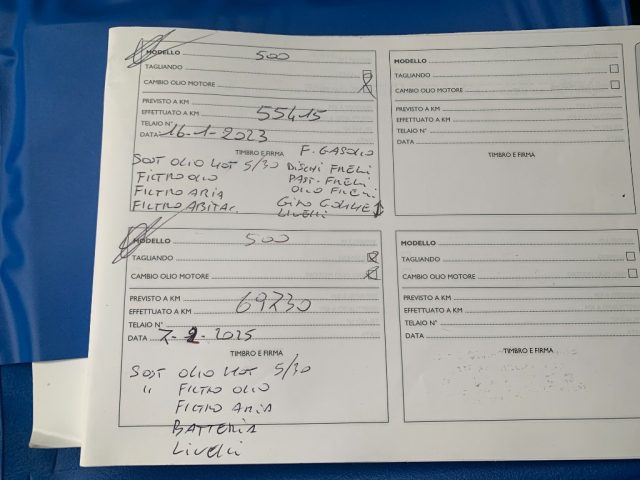 MODELLO 500
TAGLIANDO
CAMBIO OLIO MOTORE
PREVISTO A KM
EFFETTUATO A KM 55415
TELAIO N°
DATA 16-1-2023
TIMBRO E FIRMA
F. GASOLIO
SOST OLIO MOT 5/30 DISCHI FRENI
FILTRO OLIO PAST. FRENI
FILTRO ARIA OLIO FRENI
FILTRO ABITAC. GIRO GOMME
LIVELLI
MODELLO
TAGLIANDO
CAMBIO OLIO MOTORE
PREVISTO A KM
EFFETTUATO A KM
TELAIO N°
DATA
TIMBRO E FIRMA
MODELLO 500
TAGLIANDO
CAMBIO OLIO MOTORE
PREVISTO A KM
EFFETTUATO A KM 69730
TELAIO N°
DATA 7-2-2025
TIMBRO E FIRMA
SOST OLIO MOT 5/30
" FILTRO OLIO
FILTRO ARIA
BATTERIA
LIVELLI
MODELLO
TAGLIANDO
CAMBIO OLIO MOTORE
PREVISTO A KM
EFFETTUATO A KM
TELAIO N°
DATA
TIMBRO E FIRMA